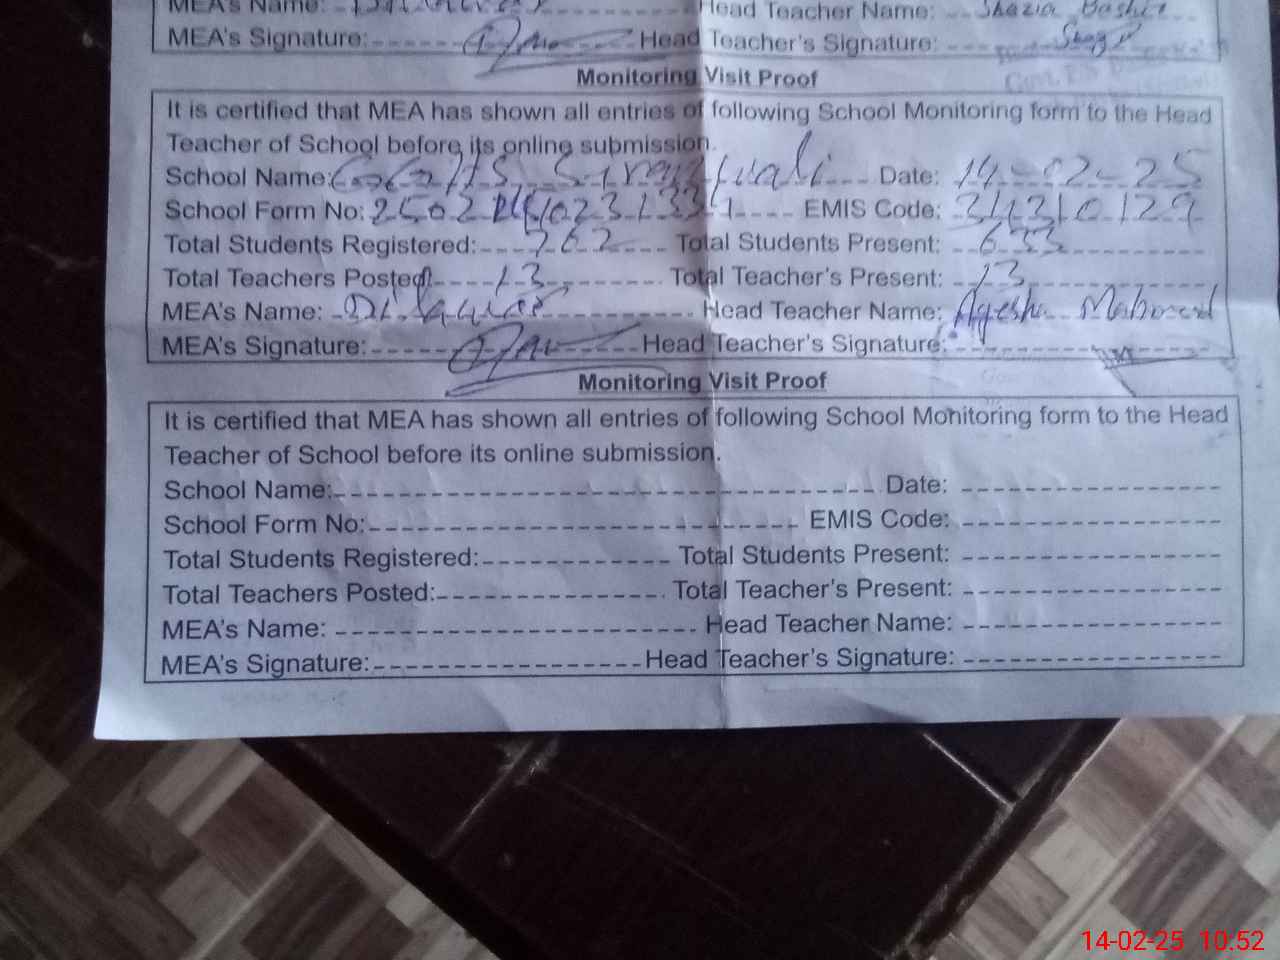 MEA's Name: Head Teacher Name: Shazia Bashir
MEA's Signature: Head Teacher's Signature:
Monitoring Visit Proof
It is certified that MEA has shown all entries of following School Monitoring form to the Head
Teacher of School before its online submission.
School Name: GGHS Date: 14-02-25
School Form No: EMIS Code: 34310129
Total Students Registered: 762 Total Students Present: 633
Total Teachers Posted: 13 Total Teacher's Present: 13
MEA's Name: Dilawar Head Teacher Name: Ayesha Mahmood
MEA's Signature: Head Teacher's Signature:
Monitoring Visit Proof
It is certified that MEA has shown all entries of following School Monitoring form to the Head
Teacher of School before its online submission.
School Name: Date:
School Form No: EMIS Code:
Total Students Registered: Total Students Present:
Total Teachers Posted: Total Teacher's Present:
MEA's Name: Head Teacher Name:
MEA's Signature: Head Teacher's Signature:
14-02-25 10:52